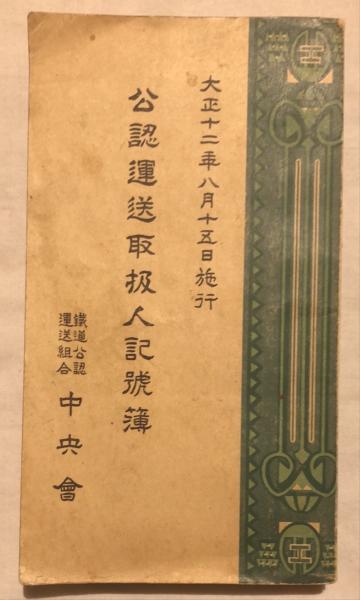 大正十二年八月十五日施行
公認運送取扱人記號簿
鐵道公認
運送組合
中央會